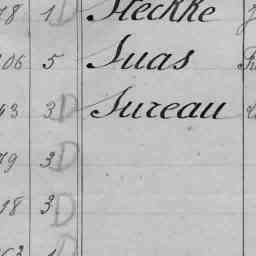 78 1 D Steckke
06 5 Suas
43 3 D Sureau
79 3 D
18 3 D